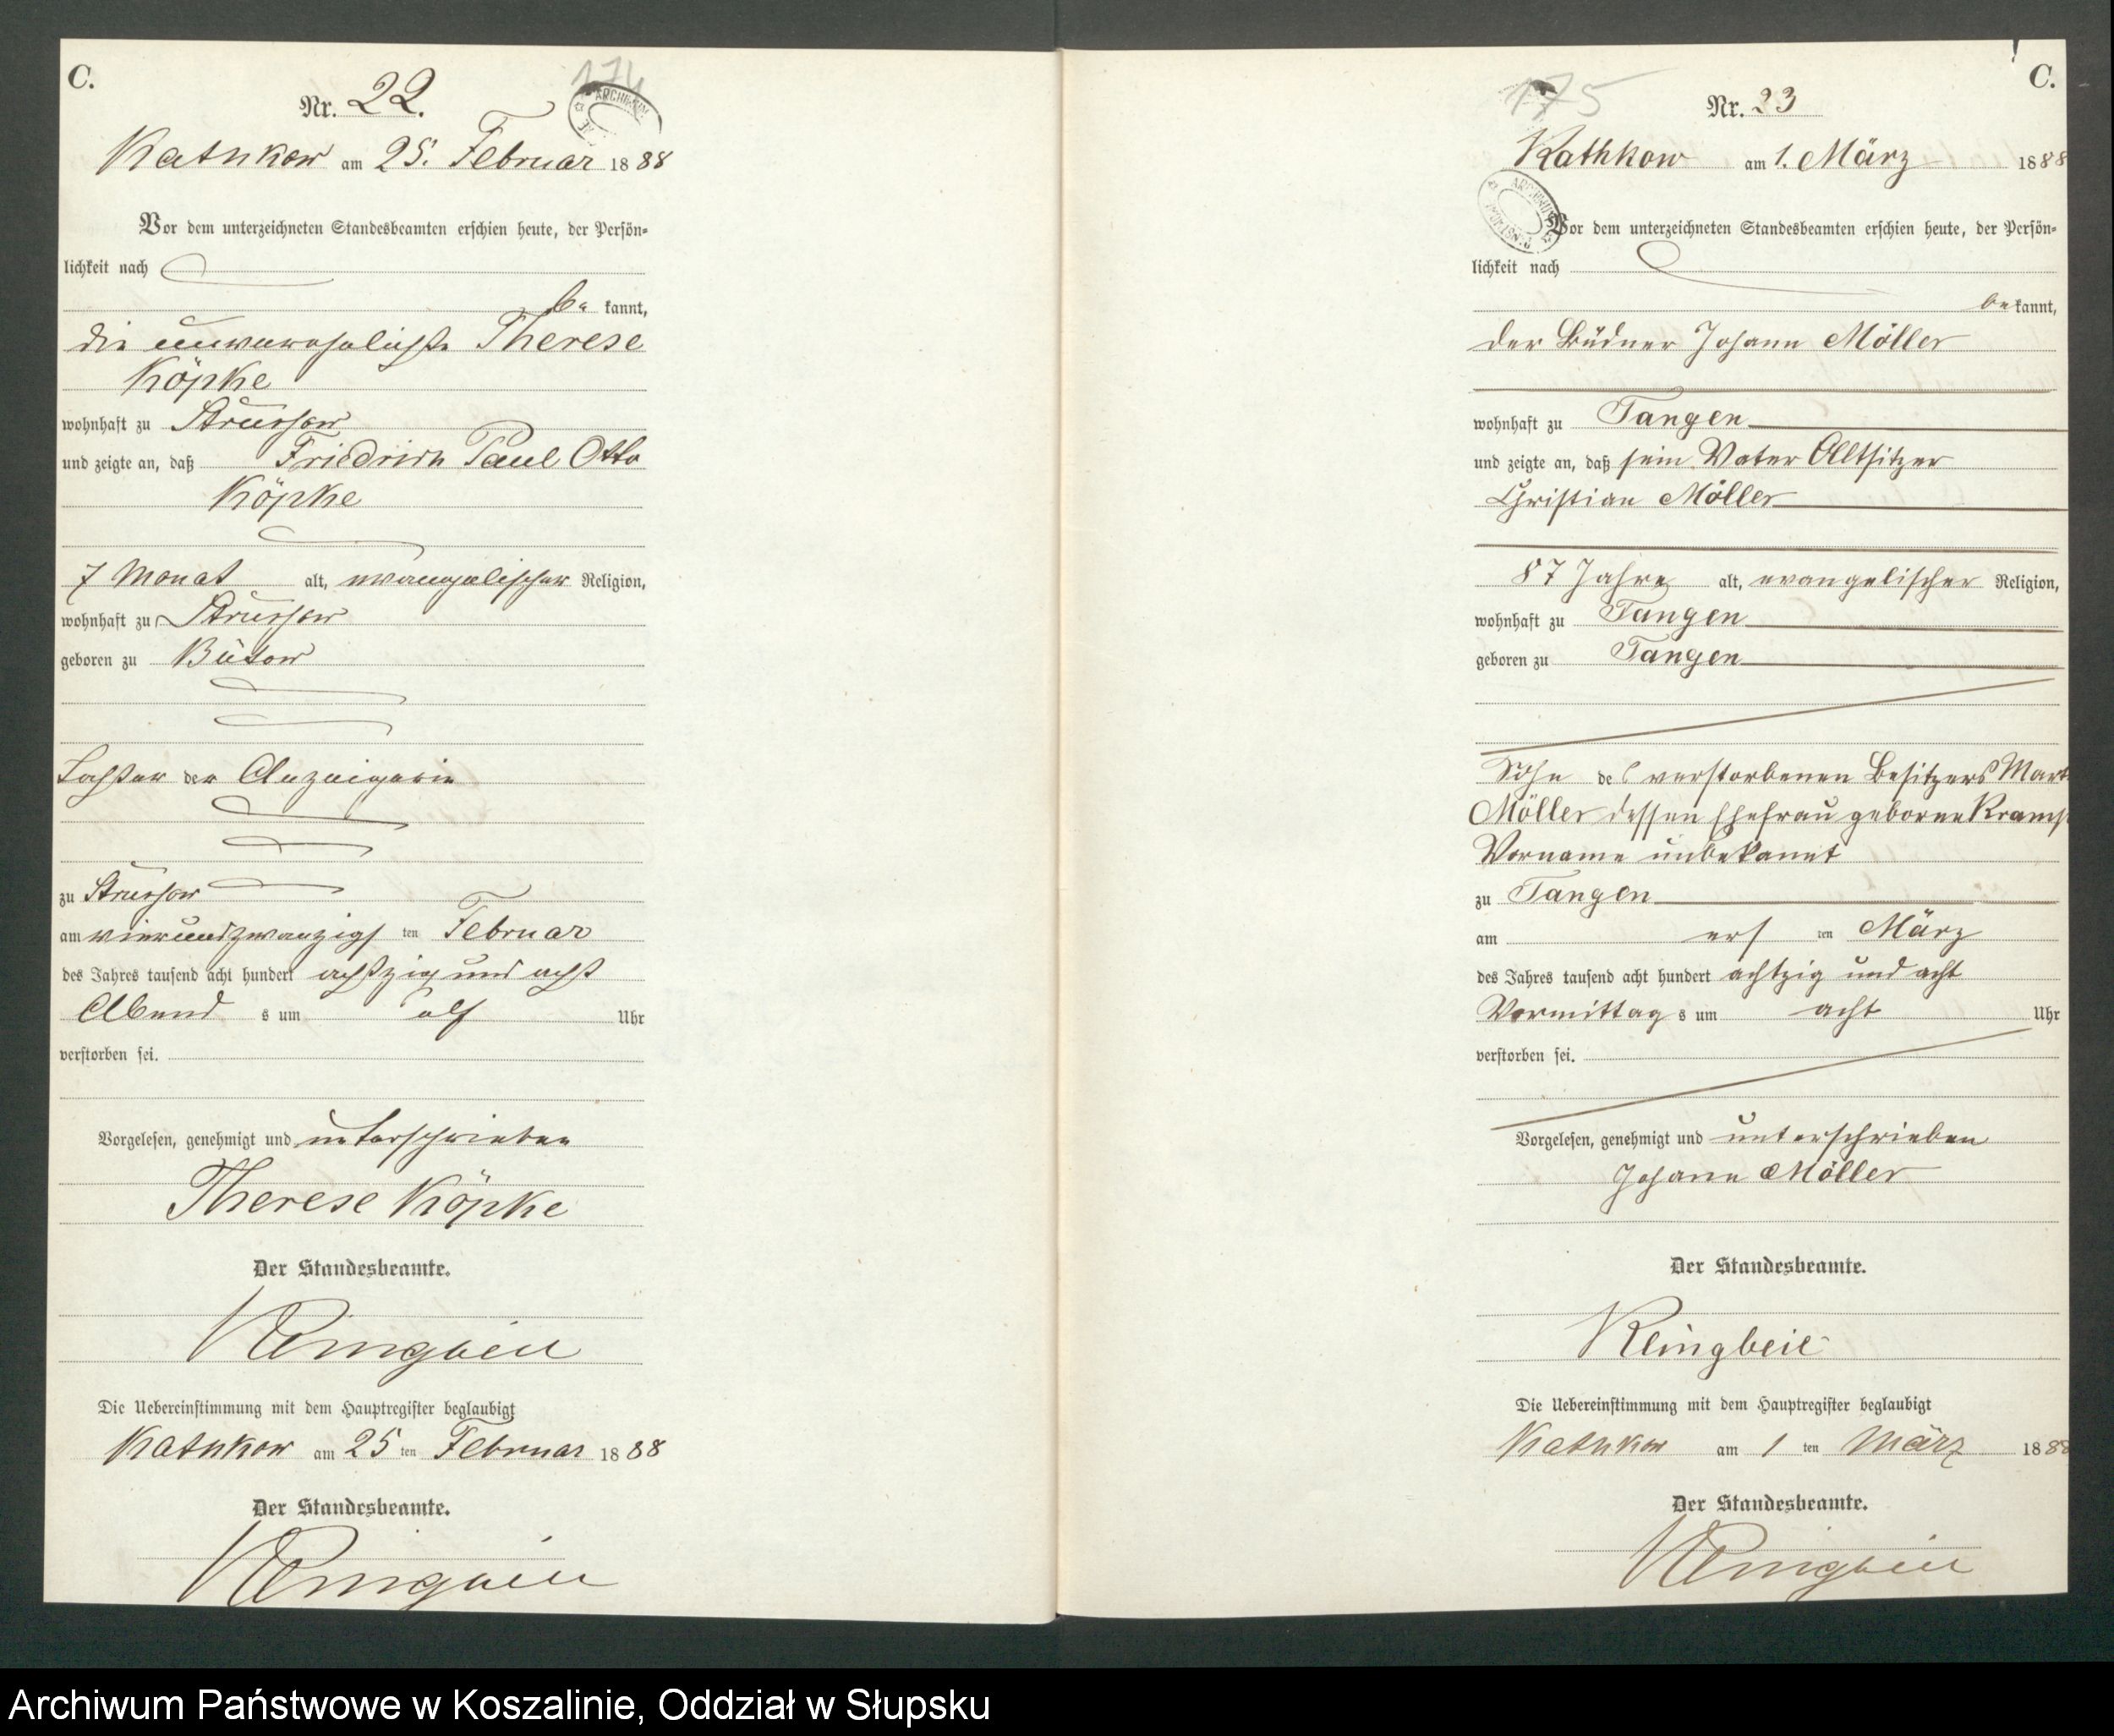 C.
174
Nr. 22.
ARCHIWUM
Kathkow am 25. Februar 1888
Vor dem unterzeichneten Standesbeamten erschien heute, der Persön-
lichkeit nach
be kannt,
die unverehelichte Therese
Köpke
wohnhaft zu Strussow
und zeigte an, daß Friedrich Paul Otto
Köpke
7 Monat alt, evangelischer Religion,
wohnhaft zu Strussow
geboren zu Bütow
der Anzeigerin
zu Strussow
am vierundzwanzigs ten Februar
des Jahres tausend acht hundert achtzig und acht
Abend s um elf Uhr
verstorben sei.
Vorgelesen, genehmigt und unterschrieben
Therese Köpke
Der Standesbeamte.
Klingbeil
Die Uebereinstimmung mit dem Hauptregister beglaubigt
Kathkow am 25 ten Februar 1888
Der Standesbeamte.
Klingbeil
C.
175
Nr. 23
Kathkow am 1. März 1888
ARCHIWUM
Vor dem unterzeichneten Standesbeamten erschien heute, der Persön-
lichkeit nach
bekannt,
der Büdner Johann Möller
wohnhaft zu Tangen
und zeigte an, daß sein Vater Altsitzer
Christian Möller
87 Jahre alt, evangelischer Religion,
wohnhaft zu Tangen
geboren zu Tangen
Sohn des verstorbenen Besitzers
Möller dessen Ehefrau geborne
Vorname unbekannt
zu Tangen
am ers ten März
des Jahres tausend acht hundert achtzig und acht
Vormittag s um acht Uhr
verstorben sei.
Vorgelesen, genehmigt und unterschrieben
Johann Möller
Der Standesbeamte.
Klingbeil
Die Uebereinstimmung mit dem Hauptregister beglaubigt
Kathkow am 1 ten März 1888
Der Standesbeamte.
Klingbeil
Archiwum Państwowe w Koszalinie, Oddział w Słupsku